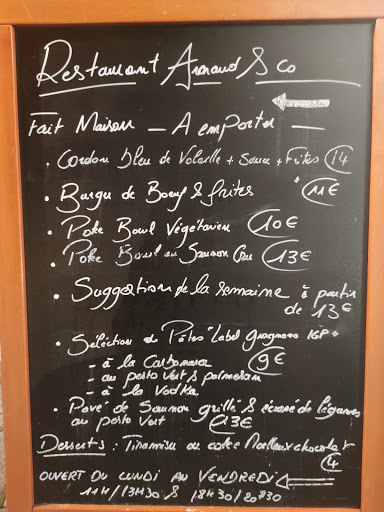 Restaurant Arnaud & Co
Fait Maison - A emporter -
• Cordon bleu de Volaille + Sauce + Frites 14
• Burger de Boeuf & frites 11€
• Poke Bowl Végétarien 10€
• Poke Bowl au Saumon Cru 13€
• Suggestion de la semaine à partir
de 13€
• Sélection de Pâtes "Label gragnano IGP"
- à la Carbonara 9€
- au pesto Vert & parmesan
- à la Vodka
• Pavé de Saumon grillé & écrasé de légumes
au pesto Vert 13€
Desserts : Tiramisu ou Moelleux chocolat
4
OUVERT DU LUNDI AU VENDREDI
11H/13H30 & 18H30/20H30